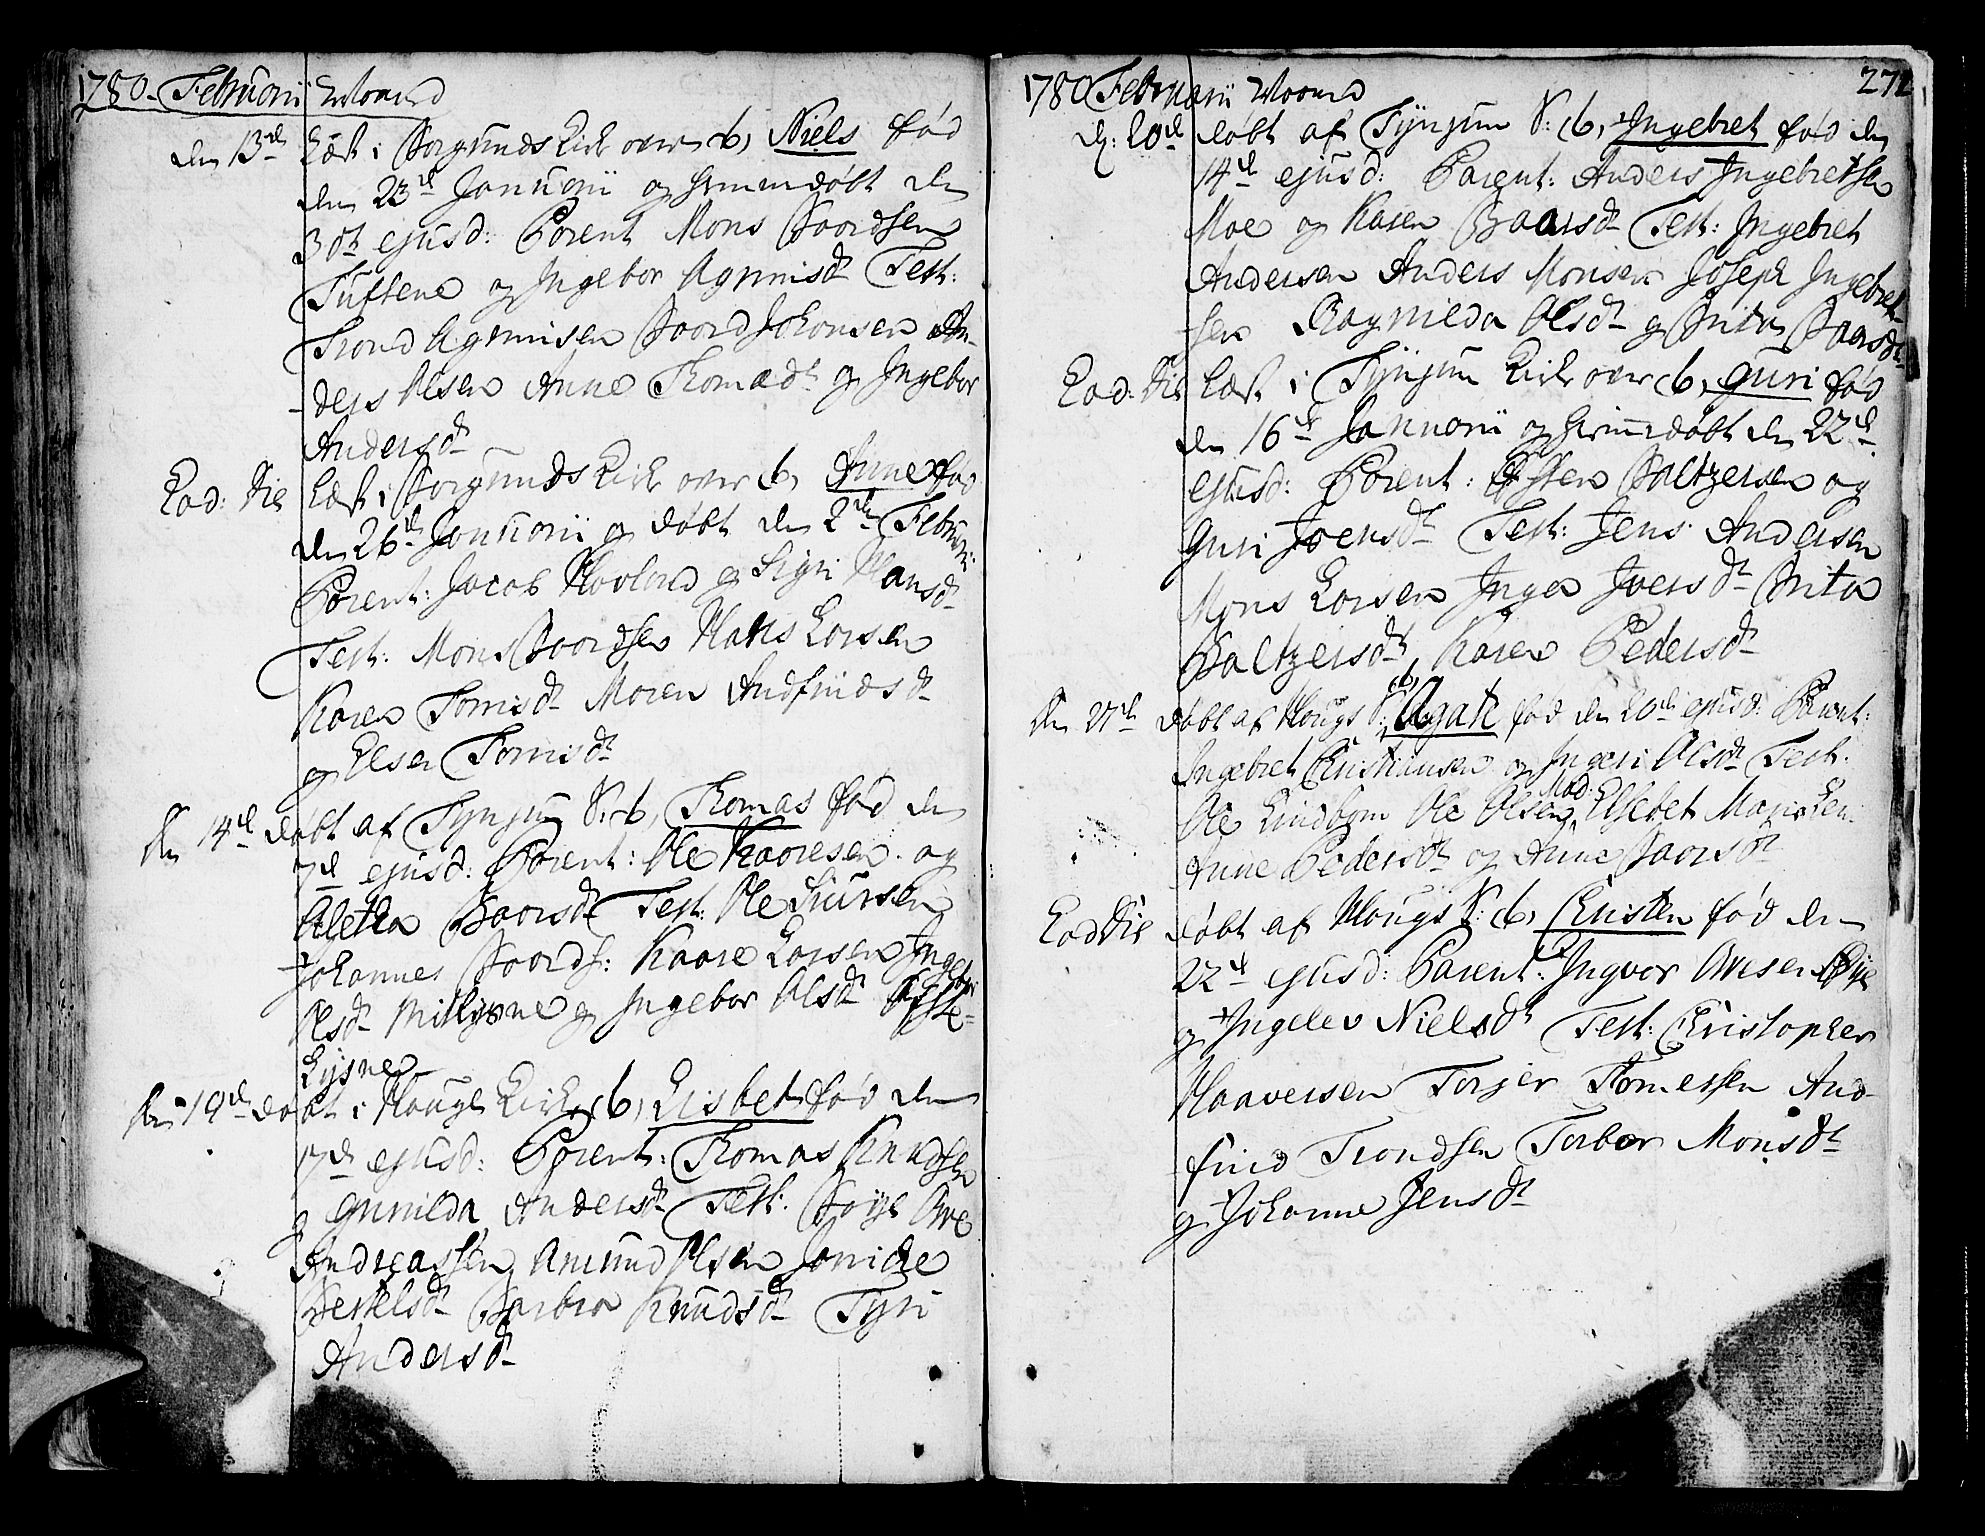 1780. Februarii Maaned
den 13de Læst i Borgunds Kirk over b, Niels fød
den 23de Januarii og hiemmedøbt den
30te ejusd: Parent Mons Baardsen
Tuftene og Ingebor Agmunsdr Test:
Trond Agmunsen Baard Johansen An-
ders Olsen Anne Thomædr og Ingebor
Andersdr
Eod: Die Læst i Borgunds Kirk over b, Anne fød
den 26de Januarii og døbt den 2den Februarii
Parent: Jacob Hovland og Sigri Hansdr
Test: Mons Baardsen Hans Larsen
Karen Tomisdr Maren Andfindsdr
og Elsen Tomisdr
den 14de døbt af Tynjum K: b, Thomas fød den
7de ejusd: Parent: Ole Kaaresen og
Aletha Baarsdr Test: Ole Siursen
Johannes Baards: Kaare Larsen Ingebor
Olsdr og Ingebor Olsdr
Lysne
den 19de døbt i Houge Kirke b, Lisbet fød den
17de ejusd: Parent: Thomas Knudsen
og Gunilda Andersdr Test: Børge Are
Andreassen Amund Olsen Janiche
Bertelsdr Barbra Knudsdr Tyri
Andersdr
1780 Februarii Maaned 272
d: 20de døbt af Tynjum K: b, Ingebret fød den
14de ejusd: Parent: Anders Ingebretsen
Moe og Karen Baarsdr Test: Ingebret
Andersen Anders Monsen Joseph Ingebret-
sen Ragnilda Olsdr og Brita Baarsdr
Eod: Die Læst i Tynjum Kirk over b, Guri fød
den 16de Januarii og hiemmedøbt den 22de
ejusd: Parent: Østen Baltzersen og
Guri Joensdr Test: Jens Andersen
Mons Larsen Inger Joensdr Brita
Baltzersdr, Karen Pedersdr
den 27de døbt af Hougs K: b, Agate fød den 20de ejusd: Parent:
Ingebret Christiansen og Ingeri Olsdr Test:
Ole Lindbom Ole Olsen, Mad: Elsebet Maria
Anne Pedersdr og Anne Baarsdr
Eod Die døbt af Hougs K: b, Christen fød den
22de ejusd: Parent: Ingvor Aresen Øye
og Ingelev Nielsdr Test: Christopher
Haaversen Torger Tomessen And-
find Trondsen Torbor Monsdr
og Johanne Jensdr